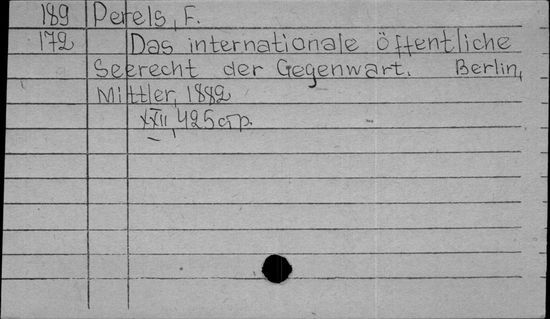 189 Perels, F.
172 Das internationale öffentliche
Seerecht der Gegenwart. Berlin,
Mittler, 1882
XXII, 425 стр.